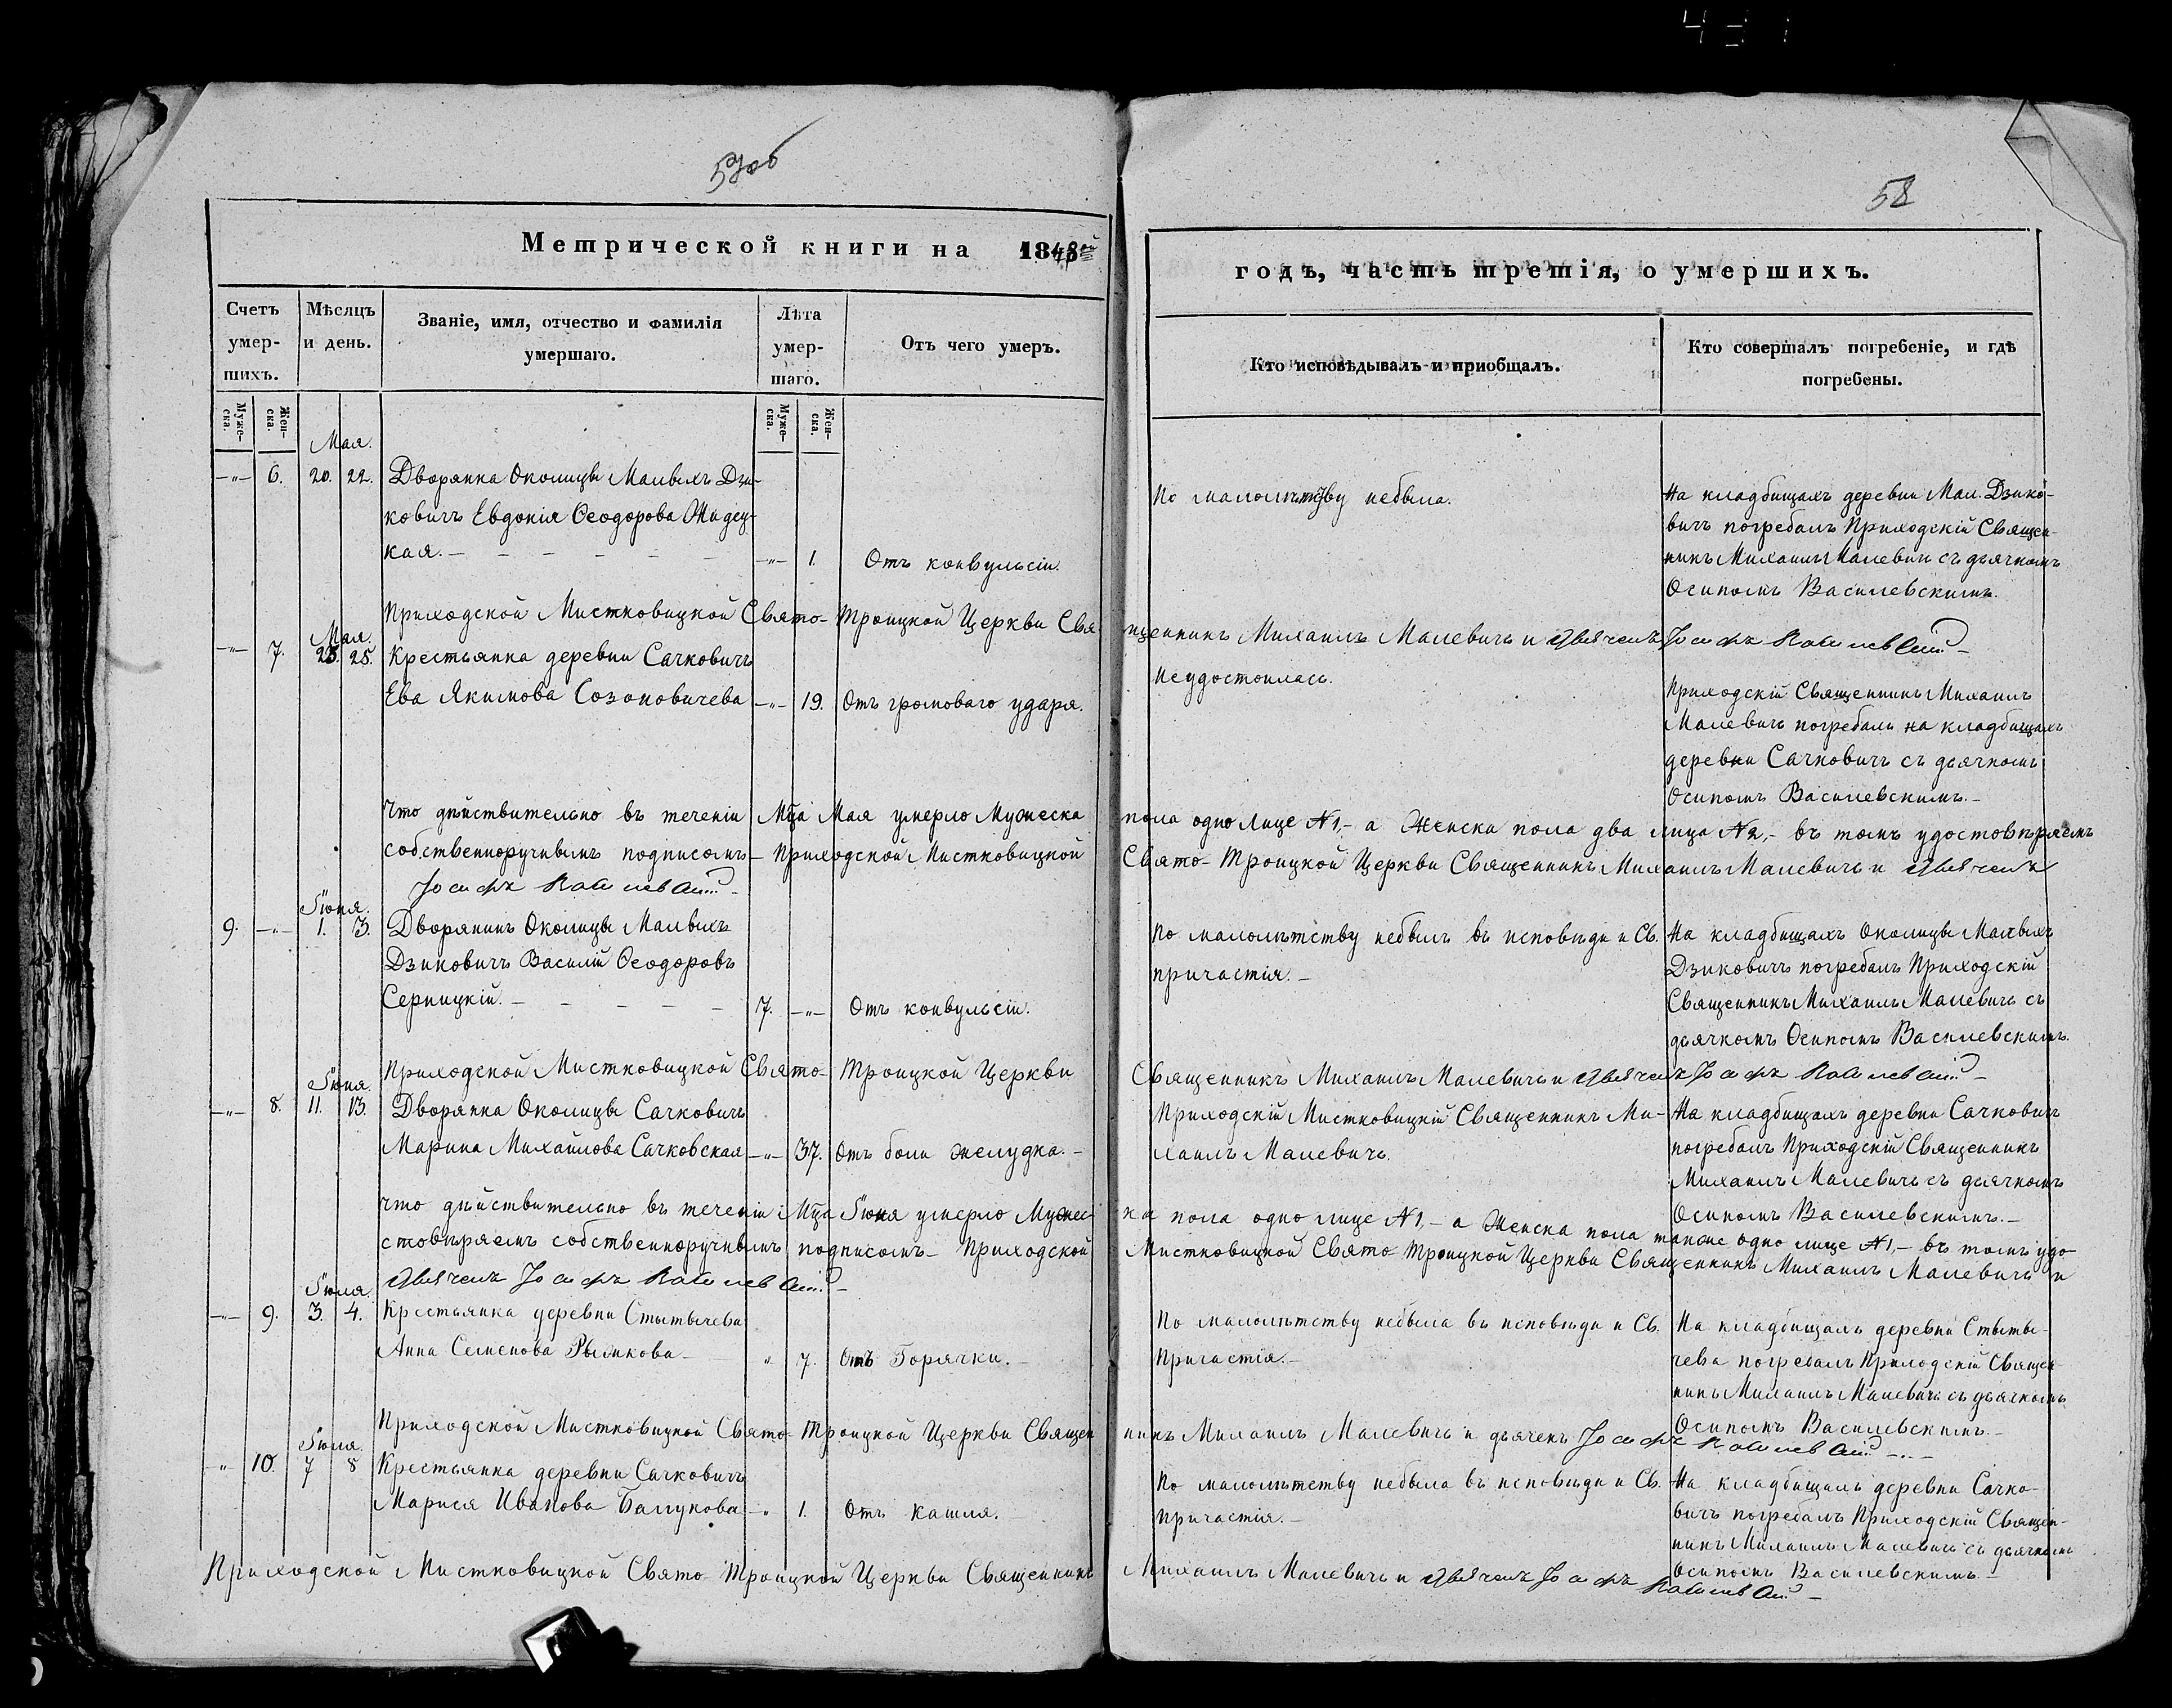 57об
58
Метрической книги на 1848ой
годъ, часть третія, о умершихъ.
Счетъ умер-шихъ.
Мѣсяцъ и день.
Званіе, имя, отчество и фамилія умершаго.
Лѣта умер-шаго.
Отъ чего умеръ.
Кто исповѣдывалъ и приобщалъ.
Кто совершалъ погребеніе, и гдѣ погребены.
Муже-ска.
Жен-ска.
Муже-ска.
Жен-ска.
Мая.
-"- 6. 20. 22. Дворянка Околицы Малыхъ Дзи-
ковичъ Евдокія Ѳеодорова Жидец-
кая. -"- 1. Отъ конвульсіи.
По малолѣтству небыла.
На кладбищахъ деревни Мал. Дзико-
вичъ погребалъ Приходскій Священ-
никъ Михаилъ Малевичъ съ дьячкомъ
Осипомъ Василевскимъ.
Приходской Мистковицкой Свято-Троицкой Церкви Свя-
щенникъ Михаилъ Малевичъ и Дьячекъ Іосифъ Василевскій
Мая.
-"- 7. 23. 25. Крестьянка деревни Сачковичъ
Ева Якимова Созоновичева -"- 19. Отъ громоваго ударя.
Неудостоилась.
Приходскій Священникъ Михаилъ
Малевичъ погребалъ на кладбищахъ
деревни Сачковичъ съ дьячкомъ
Осипомъ Василевскимъ.-
Что дѣйствительно въ теченіи Мца Мая умерло Мужеска
пола одно лице №1,- а Женска пола два лица №2,- въ томъ удостовѣряемъ
собственноручнымъ подписомъ- Приходской Мистковицкой
Свято-Троицкой Церкви Священникъ Михаилъ Малевичъ и Дьячекъ
Іосифъ Василевскій
Іюня.
9. -"- 1. 3. Дворянинъ Околицы Малыхъ
Дзиковичъ Василій Ѳеодоровъ
Серницкій. 7. -"- Отъ конвульсіи.
По малолѣтству небылъ въ исповѣди и Св.
причастія.-
На кладбищахъ Околицы Малыхъ
Дзиковичъ погребалъ Приходскій
Священникъ Михаилъ Малевичъ съ
дьячкомъ Осипомъ Василевскимъ.
Приходской Мистковицкой Свято-Троицкой Церкви
Священникъ Михаилъ Малевичъ и Дьячекъ Іосифъ Василевскій
Іюня.
-"- 8. 11. 13. Дворянка Околицы Сачковичъ
Марина Михайлова Сачковская -"- 37. Отъ боли желудка.-
Приходскій Мистковицкій Священникъ Ми-
хаилъ Малевичъ.
На кладбищахъ деревни Сачковичъ
погребалъ Приходскій Священникъ
Михаилъ Малевичъ съ дьячкомъ
Осипомъ Василевскимъ.-
Что дѣйствительно въ теченіи Мца Іюня умерло Мужес-
ка пола одно лице №1,- а Женска пола также одно лице №1,- въ томъ удо-
стовѣряемъ собственноручнымъ подписомъ- Приходской
Мистковицкой Свято Троицкой Церкви Священникъ Михаилъ Малевичъ и
Дьячекъ Іосифъ Василевскій
Іюля.
-"- 9. 3. 4. Крестьянка деревни Стытычева
Анна Семенова Рымкова " 7. Отъ Горячки.
По малолѣтству небыла въ исповѣди и Св.
Причастія.-
На кладбищахъ деревни Стыты-
чева погребалъ Приходскій Священ-
никъ Михаилъ Малевичъ съ дьячкомъ
Осипомъ Василевскимъ.-
Приходской Мистковицкой Свято-Троицкой Церкви Священ
никъ Михаилъ Малевичъ и дьячекъ Іосифъ Василевскій
Іюля.
" 10. 7 8 Крестьянка деревни Сачковичъ
Марися Иванова Балукова " 1. Отъ кашля.
По малолѣтству небыла въ исповѣди и Св.
Причастія.-
На кладбищахъ деревни Сачко-
вичъ погребалъ Приходскій Священ-
никъ Михаилъ Малевичъ съ дьячкомъ
Осипомъ Василевскимъ.-
Приходской Мистковицкой Свято-Троицкой Церкви Священникъ
Михаилъ Малевичъ и Дьячекъ Іосифъ Василевскій